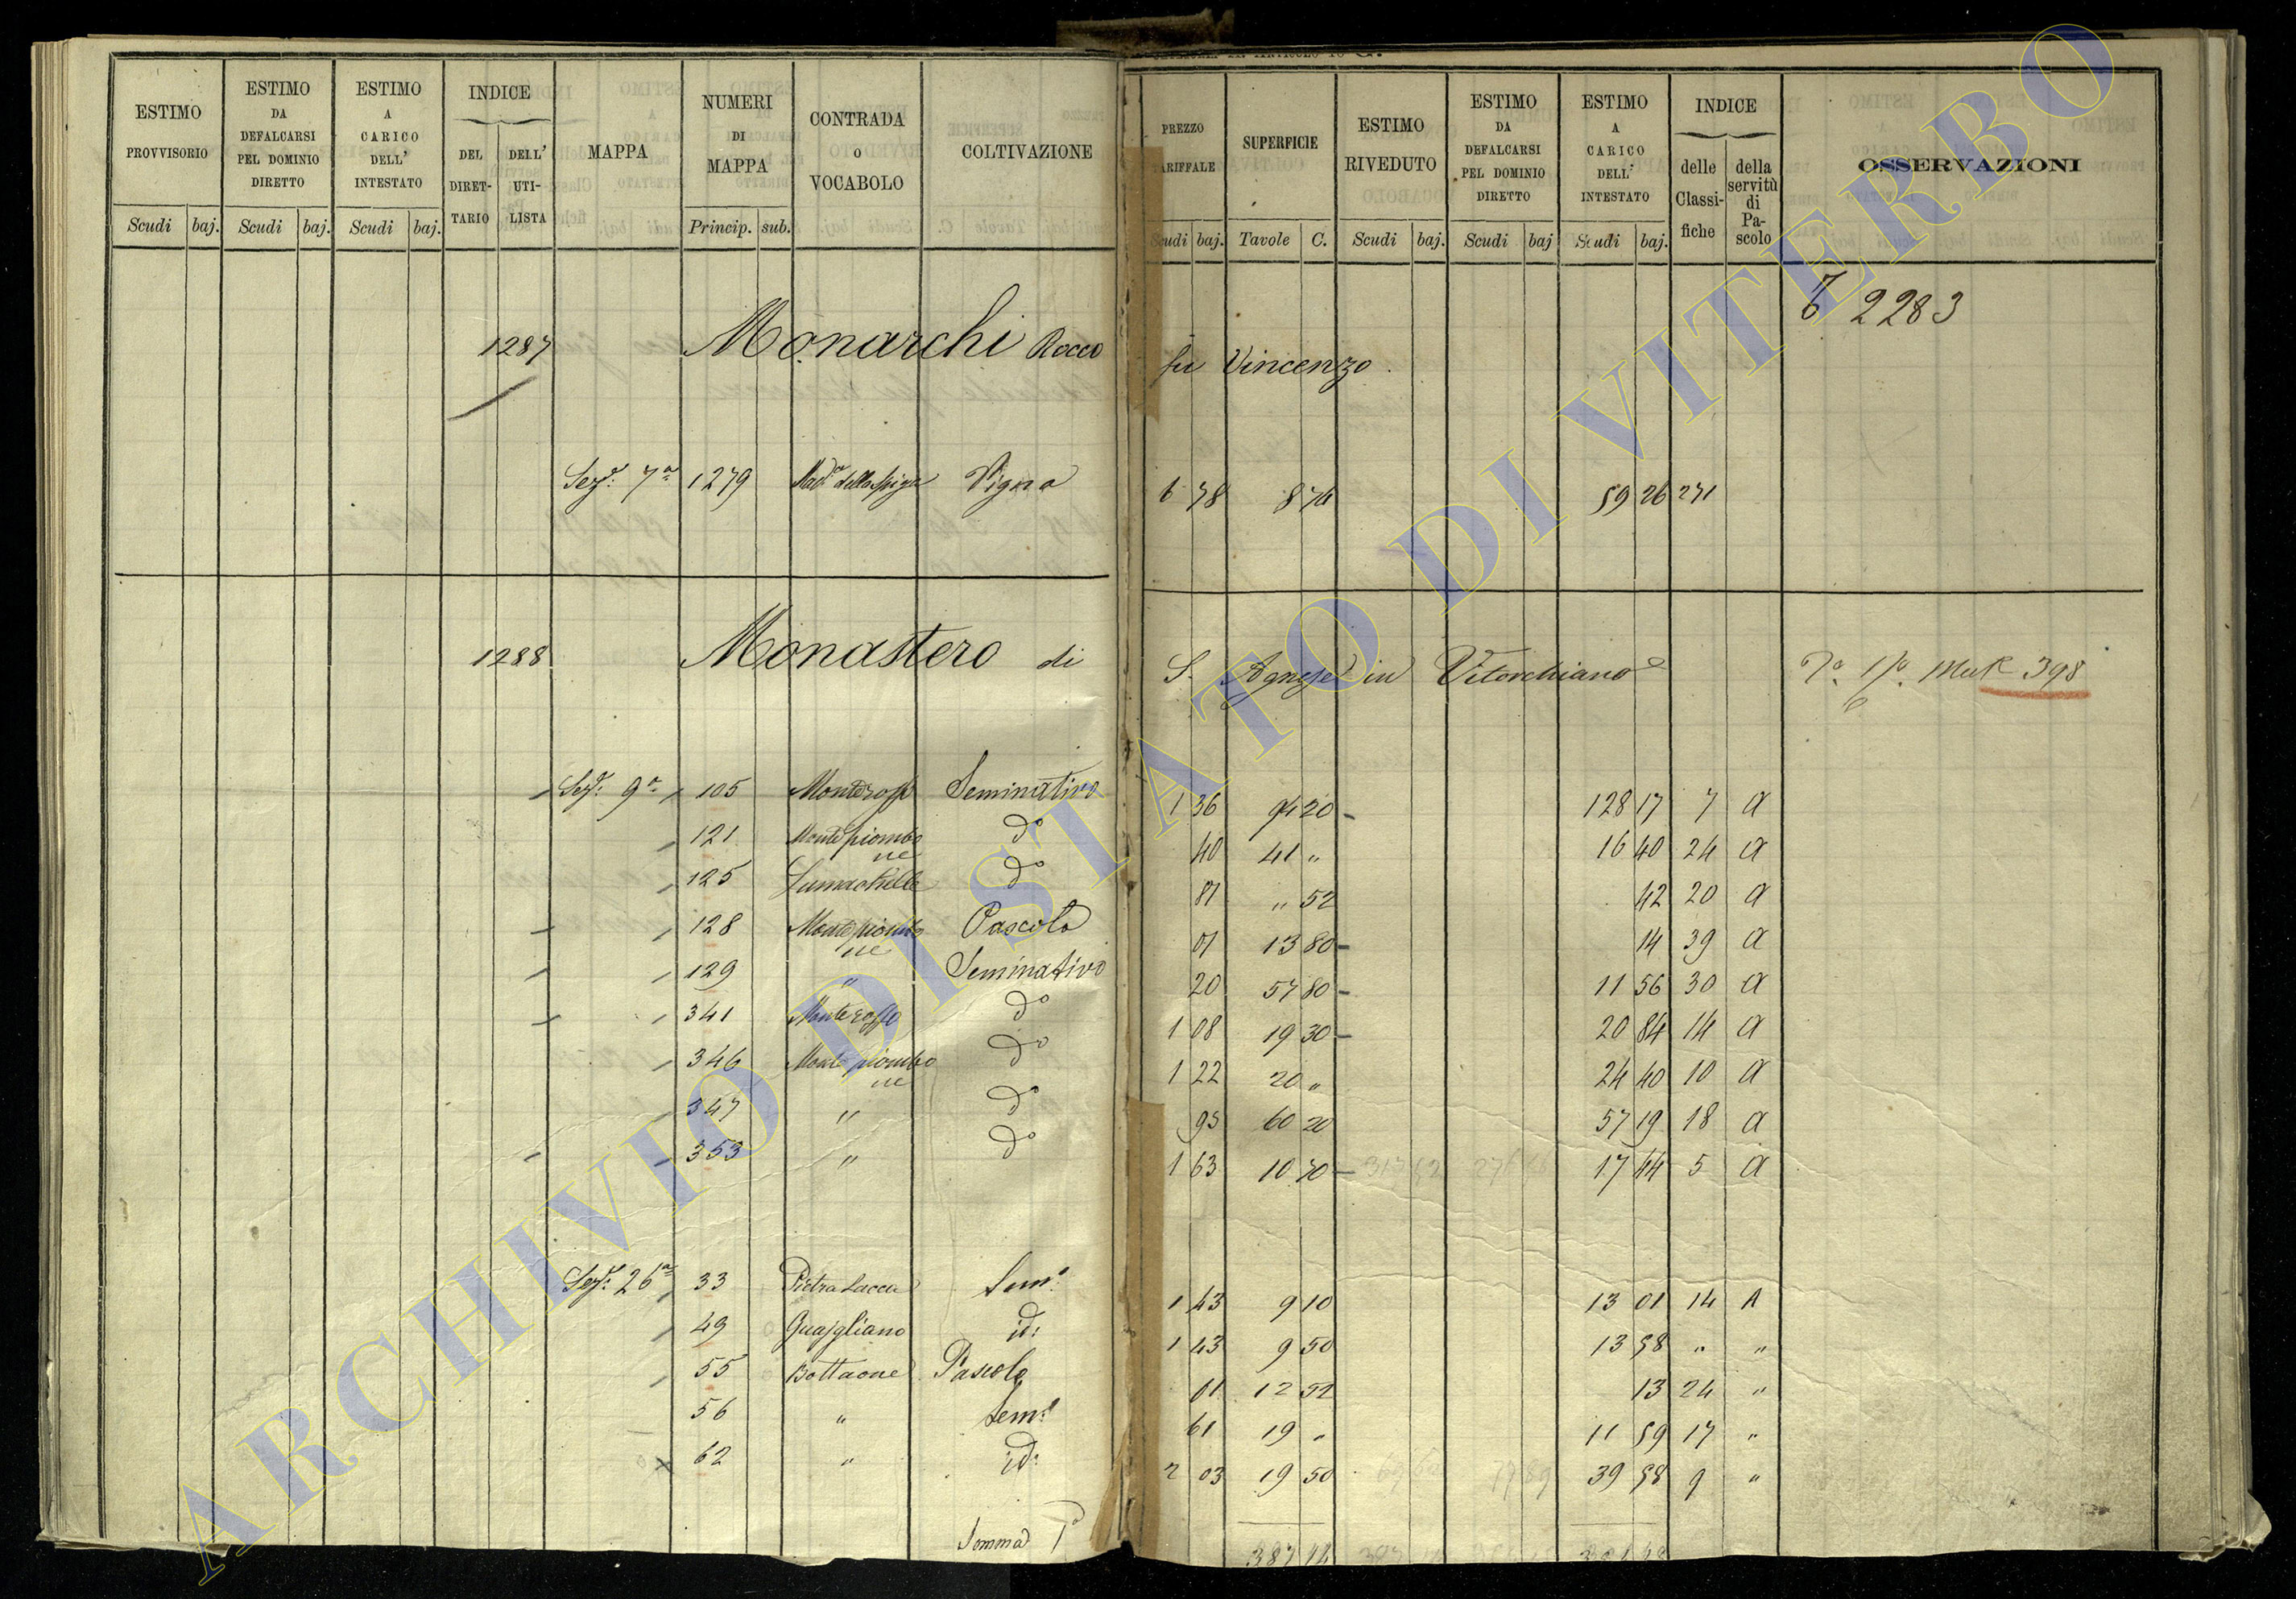 ESTIMO PROVVISORIO
ESTIMO DA DEFALCARSI PEL DOMINIO DIRETTO
ESTIMO A CARICO DELL' INTESTATO
INDICE
DEL DIRET- TARIO
DELL' UTI- LISTA
MAPPA
NUMERI DI MAPPA
CONTRADA O VOCABOLO
COLTIVAZIONE
SUPERFICIE
PREZZO
ESTIMO RIVEDUTO
ESTIMO DA DEFALCARSI PEL DOMINIO DIRETTO
ESTIMO A CARICO DELL' INTESTATO
INDICE
delle Classi- fiche
della servitù di Pa- scolo
OSSERVAZIONI
Scudi baj. Scudi baj. Scudi baj. Princip. sub. baj. Tavole C. Scudi baj. Scudi baj Scudi baj.
2283
1287 Monarchi Rocco fu Vincenzo
Sez.e 7a 1279 Mad.a della Spiga Vigna 6 78 8 74 59 26 271
1288 Monastero di S. Agnese in Vitorchiano 398
Sez.e 9a 105 Seminativo 1 36 94 20 128 17 7 a
121 Monte piombo ne do 40 41 " 16 40 24 a
125 Lumachelle do 81 " 52 42 20 a
128 Monte piombo ne Pascolo 01 13 80 14 39 a
129 " Seminativo 20 57 80 11 56 30 a
341 do 1 08 19 30 20 84 14 a
346 Monte piombo ne do 1 22 20 " 24 40 10 a
347 " do 95 60 20 57 19 18 a
353 " do 1 63 10 70 17 44 5 a
Sez.e 26a 33 Pietra Lacca Sem.o 1 43 9 10 13 01 14 A
49 Guazgliano id: 1 43 9 50 13 58 " "
55 Bottaone Pascolo 01 12 52 13 24 "
56 " Sem.o 61 19 " 11 59 17 "
62 " id: 2 03 19 50 39 58 9 "
Somma
ARCHIVIO DI STATO DI VITERBO